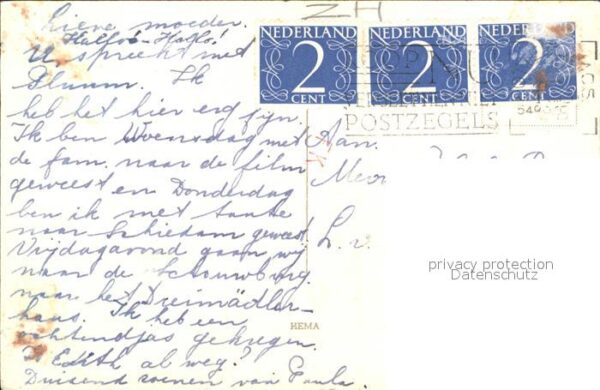 Lieve moeder.
Hallo! Hallo!
U spreekt met
Ik
heb het hier erg fijn.
Ik ben Woensdag met
de fam. naar de film
geweest en Donderdag
ben ik met tante
naar Schiedam geweest
Vrijdagavond gaan wij
naar de Schouwburg.
naar het Dreimädler-
haus. Ik heb een
ochtendjas gekregen.
Is Edith al weg?
Duizend zoenen van Paula.
ZH
NEDERLAND
2
CENT
NEDERLAND
2
CENT
NEDERLAND
2
CENT
POSTZEGELS
Aan.
L. v.
HEMA
privacy protection
Datenschutz